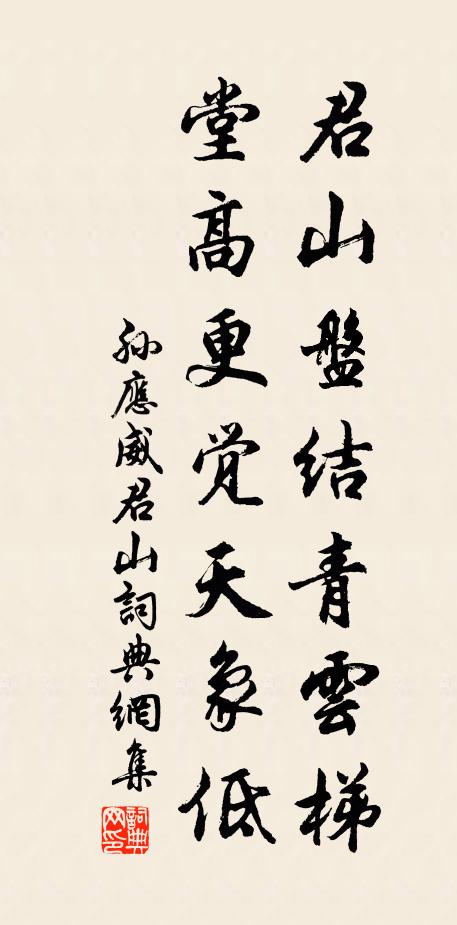 君山盤结青雲梯
堂高更觉天象低
孫應威君山詞典網集
詞典
网印